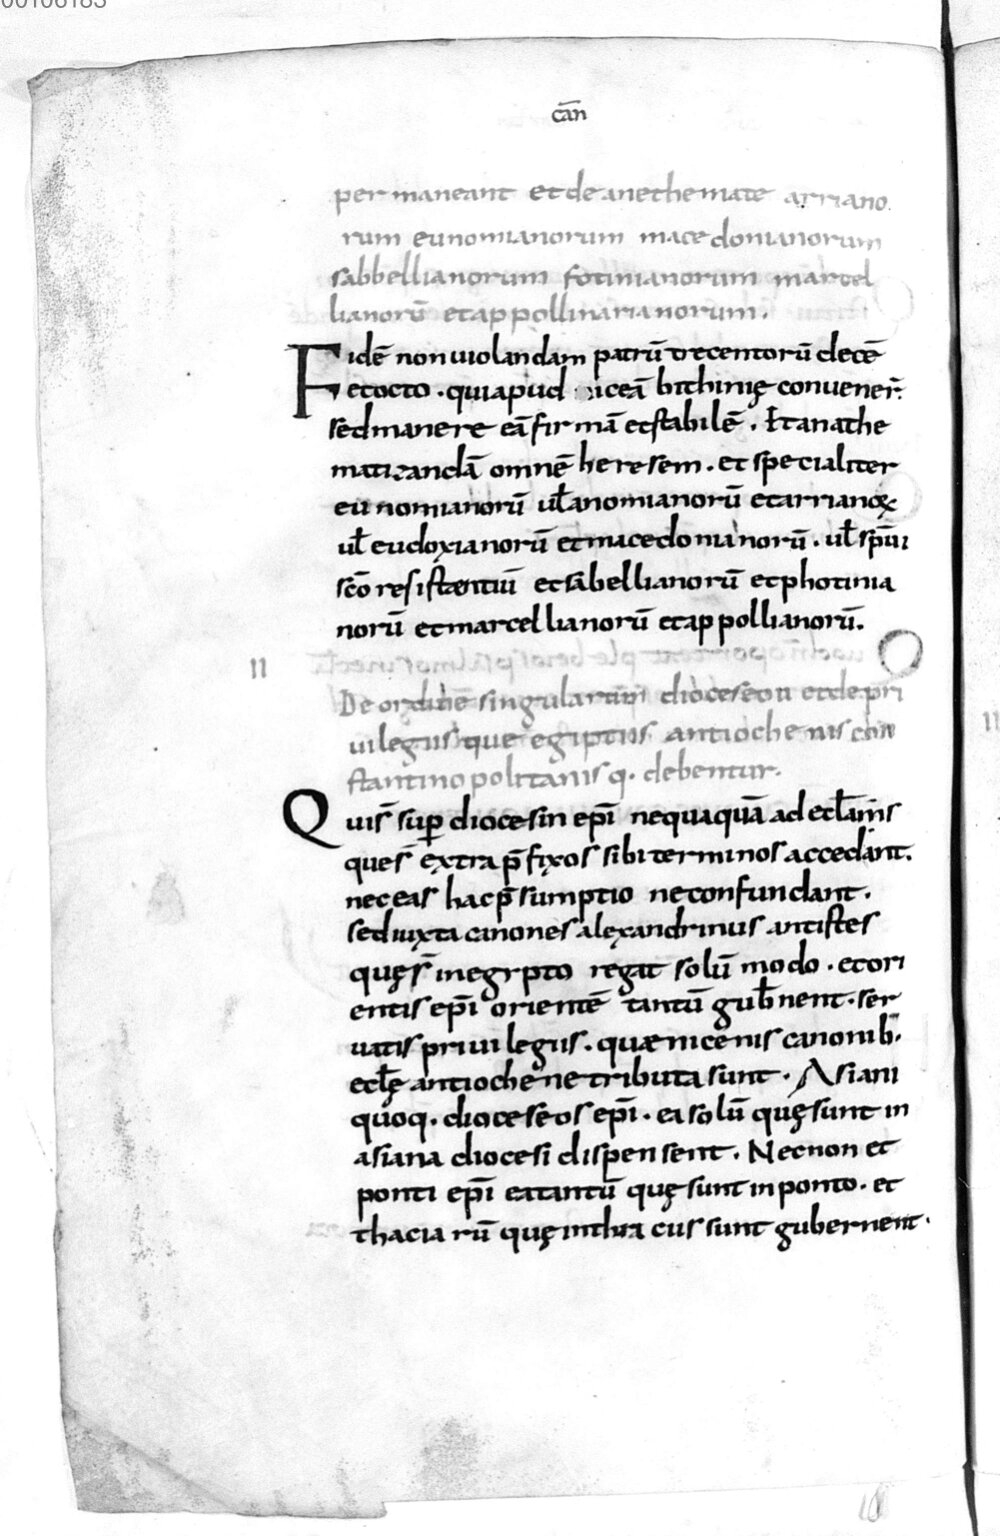 00106183
cā̄n
permaneant et de anethemate arriano
rum eunomianorum macedonianorum
sabbellianorum fotinianorum marcel
lianorū et appollinarianorum.
Fidē non uiolandam patrū trecentorū decē
et octo . qui apud niceā bithinię conuener̄.
sed manere eā firmā et stabilē . Et anathe
matizandā omnē heresem . et specialiter
eunomianorū ul̄ anomianorū et arrianoꝝ
ul̄ eudoxianorū et macedonianorū . ul̄ sp̄ui
sc̄o resistentiū et sabellianorū et photinia
norū et marcellianorū et appollianorū.
II
De ordine singularum dioceseon et de pri
uilegiis que egiptiis antiochenis con
stantinopolitanis q. debentur.
Qui s̄ sup̱ diocesin ep̄i nequaquā ad eccl̄am̄s
que s̄ extra p̄fixos sibi terminos accedant.
nec eas hac p̄sumptio ne confundant.
sed iuxta canones alexandrinus antistes
quę s̄ in egypto regat solū modo . et ori
entis ep̄i orientē tantū gub̄nent . ser
uatis priuilegiis . quæ nicenis canonib̄.
eccl̄ę antiochene tributa sunt . Asiani
quoq. dioceseos ep̄i . ea solū quę sunt in
asiana diocesi dispensent . Necnon et
ponti ep̄i ea tantū quę sunt in ponto . et
thacia rū quę in thra cus sunt gubernent .